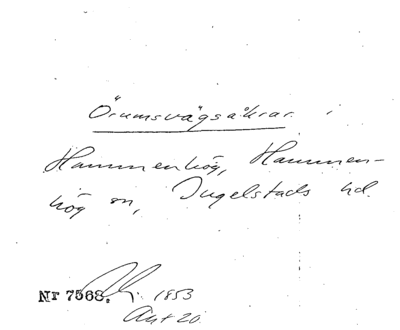 Örumsvägsåkrar i
Hammenhög, Hammen-
hög sn, Ingelstads hd.
Nr 7568. 1853
Akt 20.